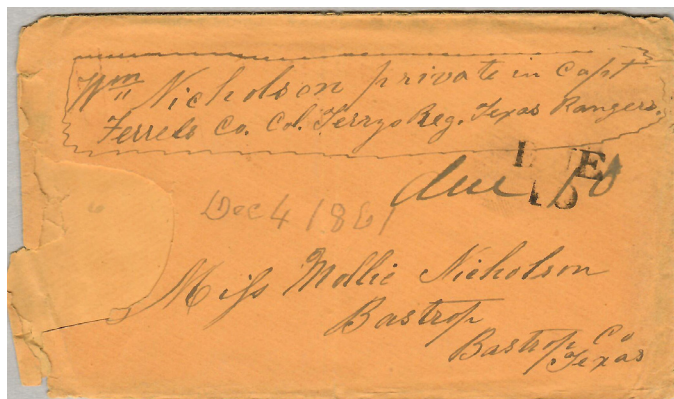 Wm Nicholson private in Capt
Ferrels Co. Col. Terrys Reg. Texas Rangers.
DUE
10
due 10
Dec 4 1861
Miss Mollie Nicholson
Bastrop
Bastrop Co
Texas